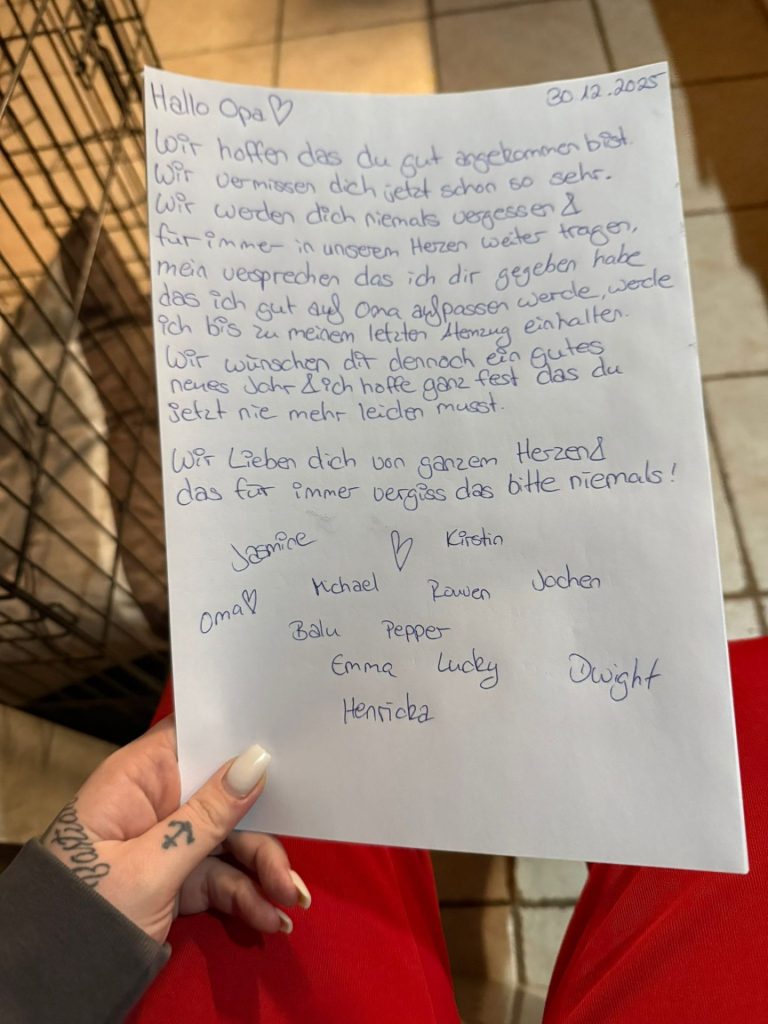 Hallo Opa♡ 30.12.2025
Wir hoffen das du gut angekommen bist.
Wir vermissen dich jetzt schon so sehr.
Wir werden dich niemals vergessen &
für immer in unserem Herzen weiter tragen,
mein versprechen das ich dir gegeben habe
das ich gut auf Oma aufpassen werde, werde
ich bis zu meinem letzten Atemzug einhalten.
Wir wünschen dir dennoch ein gutes
neues Jahr & ich hoffe ganz fest das du
jetzt nie mehr leiden musst.
Wir Lieben dich von ganzem Herzen &
das für immer vergiss das bitte niemals!
Jasmine ♡ Kirstin
Oma♡ Michael Rowen Jochen
Balu Pepper
Emma Lucky Dwight
Henricka